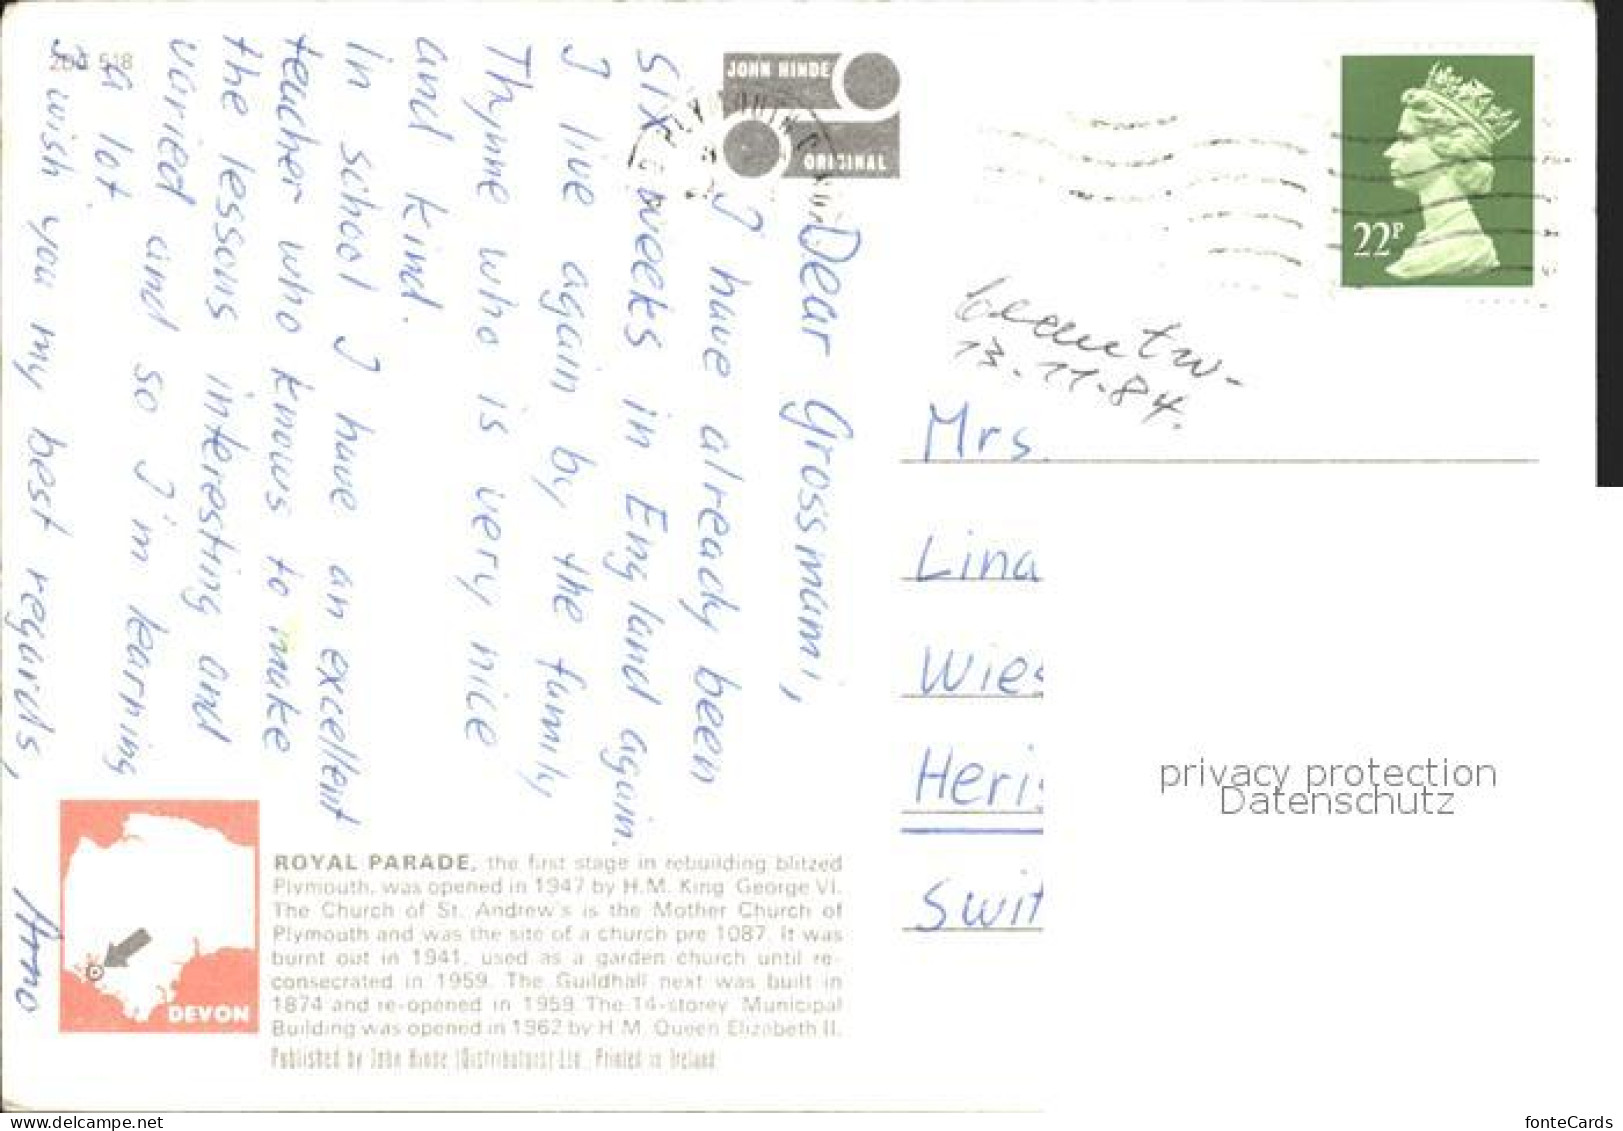 200 518
JOHN HINDE
ORIGINAL
22P
13.11.84.
Dear Grossmami,
I have already been
six weeks in England again.
I live again by the family
Thynne who is very nice
and kind.
In school I have an excellent
teacher who knows to make
the lessons interesting and
varied and so I'm learning
a lot.
I wish you my best regards,
Arno
Mrs.
Lina
Wies
Heris
Swit
privacy protection
Datenschutz
DEVON
ROYAL PARADE, the first stage in rebuilding blitzed
Plymouth, was opened in 1947 by H.M. King George VI.
The Church of St. Andrew's is the Mother Church of
Plymouth and was the site of a church pre 1087. It was
burnt out in 1941, used as a garden church until re-
consecrated in 1959. The Guildhall next was built in
1874 and re-opened in 1959. The 14-storey Municipal
Building was opened in 1962 by H.M. Queen Elizabeth II.
Published by John Hinde (Distributors) Ltd., Printed in Ireland
delcampe.net
fonteCards